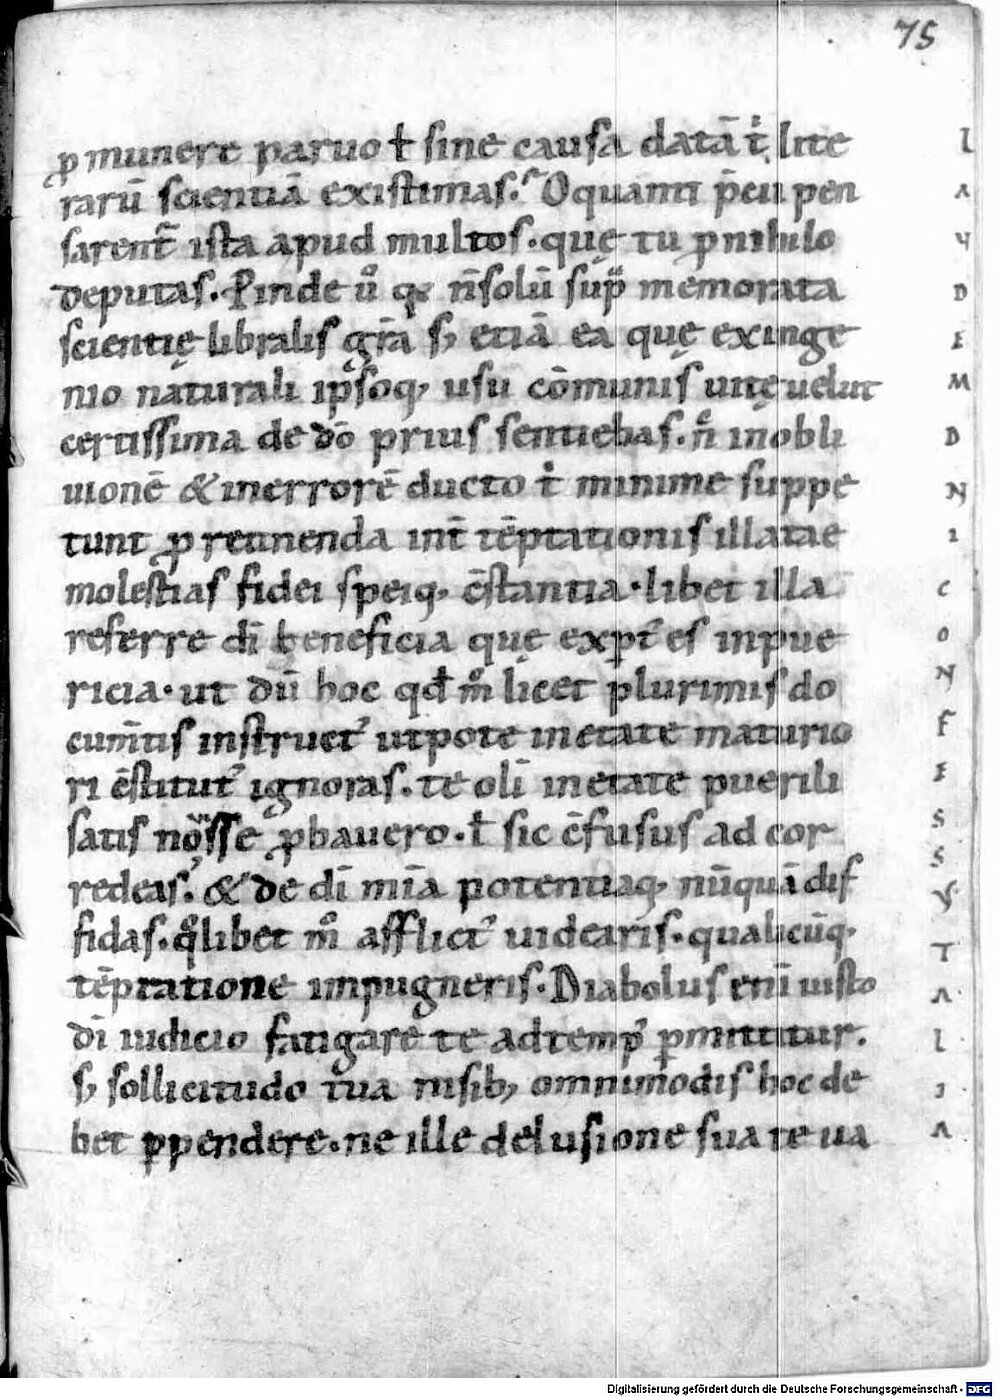 75
ꝓ munere paruo ł sine causa datā t᷒ lite
rarū scientiā existimas. O quanti p̄cii pen
sarent̄ ista apud multos. quę tu ꝓ nihilo
deputas. Ꝓinde ů qa n̄ solū sup͛ memorata
scientię libralis gr̄a sꝫ etiā ea quę ex inge
nio naturali ipsoqꝫ usu cōmunis uitę uelut
certissima de dō prius sentiebas. n̊ in obli
uionē & in errorē ducto t᷒ minime suppe
tunt ꝓ retinenda int̄ tēptationis illatae
molestias fidei speiqꝫ c̄stantia. libet illa
referre dī beneficia quę exptꝰ es in pue
ricia. ut dū hoc qđ m̊ licet plurimis do
cum̄tis instructꝰ utpote in etate maturio
ri c̄stitutꝰ ignoras. te olī in etate puerili
satis nosse ꝓbauero. ł sic c̄fusus ad cor
redeas. & de dī mīa potentiaqꝫ nūquā dif
fidas. q̊libet m̊ afflictꝰ uidearis. qualicūqꝫ
tēptatione impugneris. Diabolus eni iusto
dī iudicio fatigare te ad tempꝰ ꝑmittitur.
sꝫ sollicitudo tua nisibꝫ omnimodis hoc de
bet ꝑpendere. ne ille delusione sua te ua
L
A
U
D
E
M
D
N
I
C
O
N
F
E
S
S
Y
T
A
L
I
A
Digitalisierung gefördert durch die Deutsche Forschungsgemeinschaft - DFG